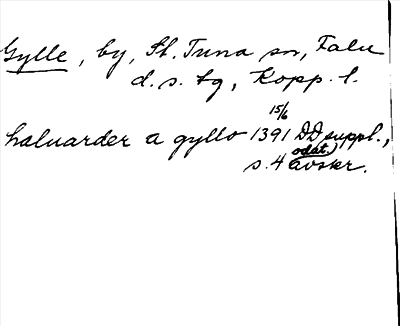 Gylle, by, St. Tuna sn, Falu
d. s. tg, Kopp. l.
15/6
haluarder a gyllo 1391 DD suppl.,
odat.
s. 4 avskr.